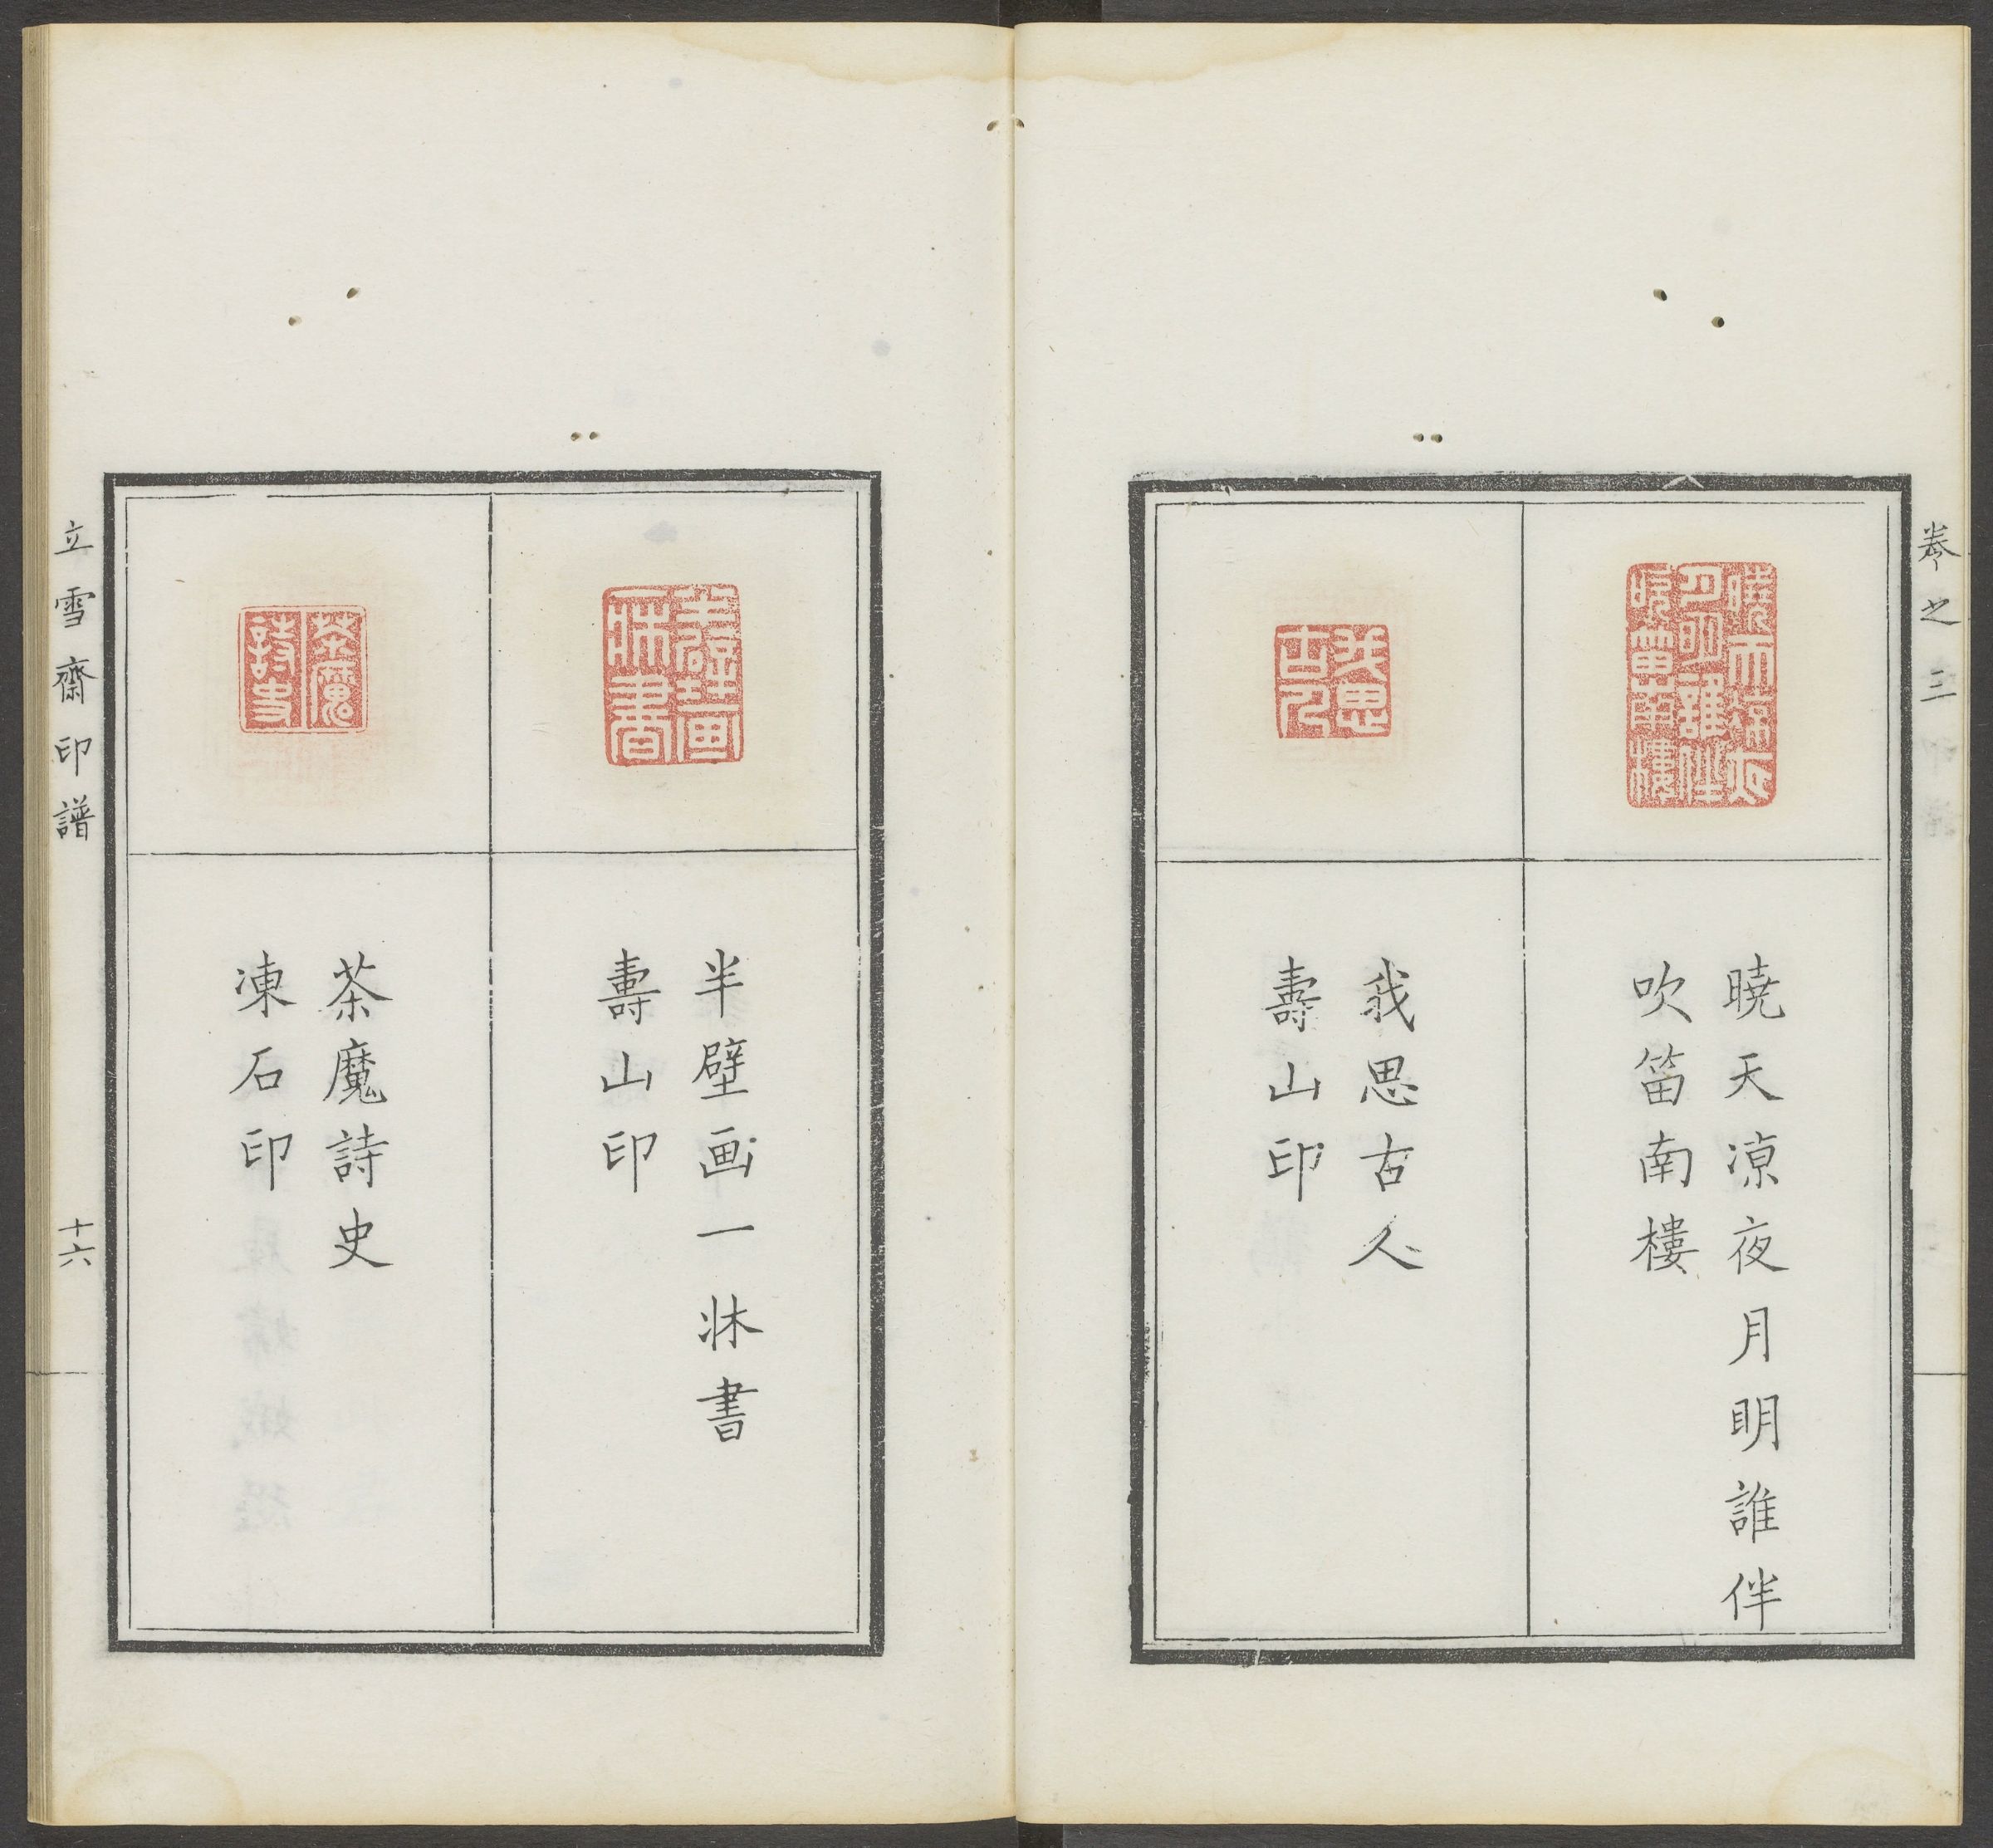 卷之三
曉天凉夜月明誰伴
吹笛南樓
我思古人
壽山印
半壁画一牀書
壽山印
茶魔詩史
凍石印
立雪齋印譜
十六